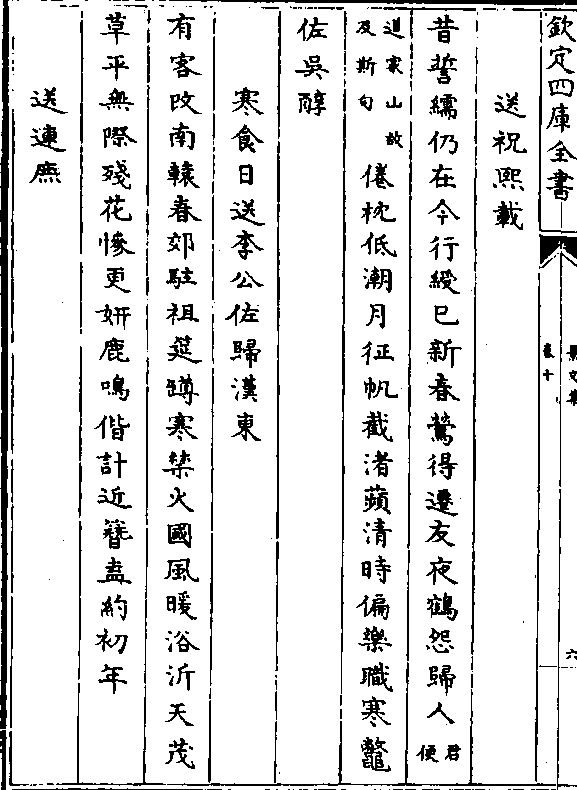 欽定四庫全書
卷十
六
送祝熙載
昔誓繻仍在今行綬已新春鶯得遷友夜鶴怨歸人君便
道家山故及斯句倦枕低潮月征帆截渚蘋清時偏樂職寒鼈
佐吳醇
寒食日送李公佐歸漢東
有客改南轅春郊駐祖筵罇寒禁火國風暖浴沂天茂
草平無際殘花慘更妍鹿鳴偕計近簪盍約初年
送連庶